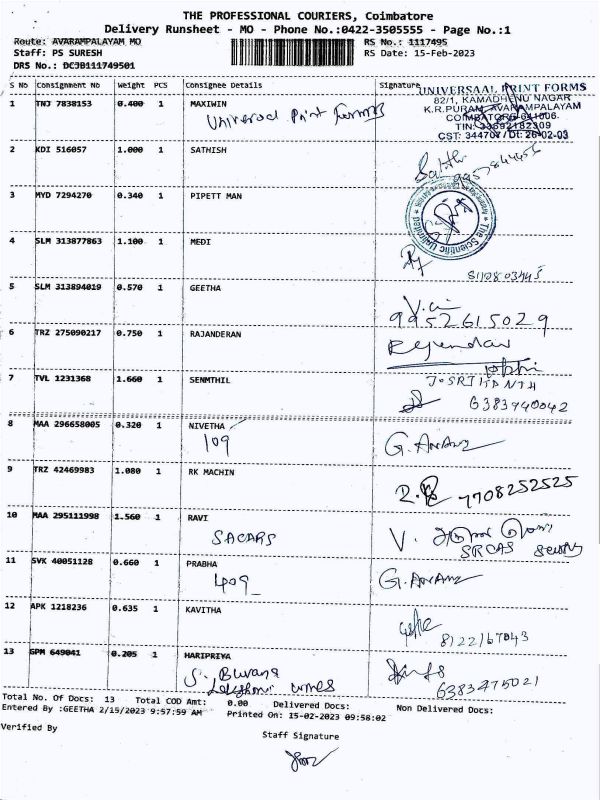 THE PROFESSIONAL COURIERS, Coimbatore
Delivery Runsheet - MO - Phone No.:0422-3505555 - Page No.:1
Route: AVARAMPALAYAM MO RS No.: 1117495
Staff: PS SURESH RS Date: 15-Feb-2023
DRS No.: DCJB111749501
S No Consignment No Weight PCS Consignee Details Signature
UNIVERSAAL PRINT FORMS
82/1, KAMADHENU NAGAR
K.R.PURAM, AVARAMPALAYAM
COIMBATORE-641006.
TIN: 33592182309
CST: 344707 / Dt: 26-02-03
1 TNJ 7838153 0.400 1 MAXIWIN
Universal Print Forms
2 KDI 516057 1.000 1 SATHISH
3 MYD 7294270 0.340 1 PIPETT MAN
The Scientific Unlimited
4 SLM 313877863 1.100 1 MEDI
5 SLM 313894019 0.570 1 GEETHA
9952615029
6 TRZ 275090217 0.750 1 RAJANDERAN
Rajendar
7 TVL 1231368 1.660 1 SENMTHIL
6383940042
8 MAA 296658005 0.320 1 NIVETHA
109 G. Anand
9 TRZ 42469983 1.080 1 RK MACHIN
7708252525
10 MAA 295111998 1.560 1 RAVI
SACARS V.
SRCAS
11 SVK 40051128 0.660 1 PRABHA
409 G. Anand
12 APK 1218236 0.635 1 KAVITHA
8122167043
13 GPM 649041 0.205 1 HARIPRIYA
S. Buvana
6383475021
Total No. Of Docs: 13 Total COD Amt: 0.00 Delivered Docs: Non Delivered Docs:
Entered By :GEETHA 2/15/2023 9:57:59 AM Printed On: 15-02-2023 09:58:02
Verified By Staff Signature